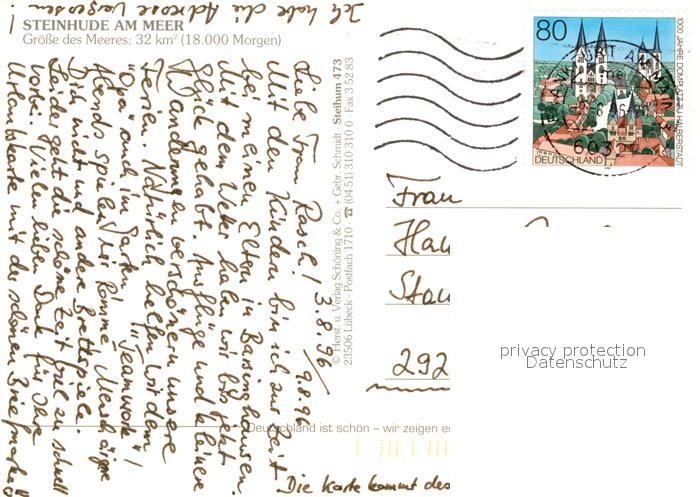 Ich habe die Adresse vergessen!
STEINHUDE AM MEER
Größe des Meeres: 32 km² (18.000 Morgen)
Liebe Frau Rasch! 3.8.96 / 9.8.96
Mit den Kindern bin ich zur Zeit
bei meinen Eltern in Barsinghausen.
Mit dem Wetter haben wir bis jetzt
Glück gehabt. Ausflüge und kleinere
Wanderungen verschönern unsere
Ferien. Natürlich helfen wir dem
"Opa" auch im Garten. "Teamwork"!
Abends spielen wir Rommé, Mensch ärgere
Dich nicht und andere Brettspiele.
Leider geht die schöne Zeit viel zu schnell
vorbei. Vielen lieben Dank für Ihre
Urlaubskarte mit der schönen Briefmarke!
Die Karte kommt des
© Herst. u. Verlag Schöning & Co. + Gebr. Schmidt · Steihum 473
23506 Lübeck · Postfach 1710 · ☎ (04 51) 310 310 · Fax 3 52 83
Deutschland ist schön – wir zeigen es
80
1000 JAHRE DOMPLATZ ZU HALBERSTADT
DEUTSCHLAND
FRANKFURT AM MAIN
Frau
Hau
Stau
292
privacy protection
Datenschutz